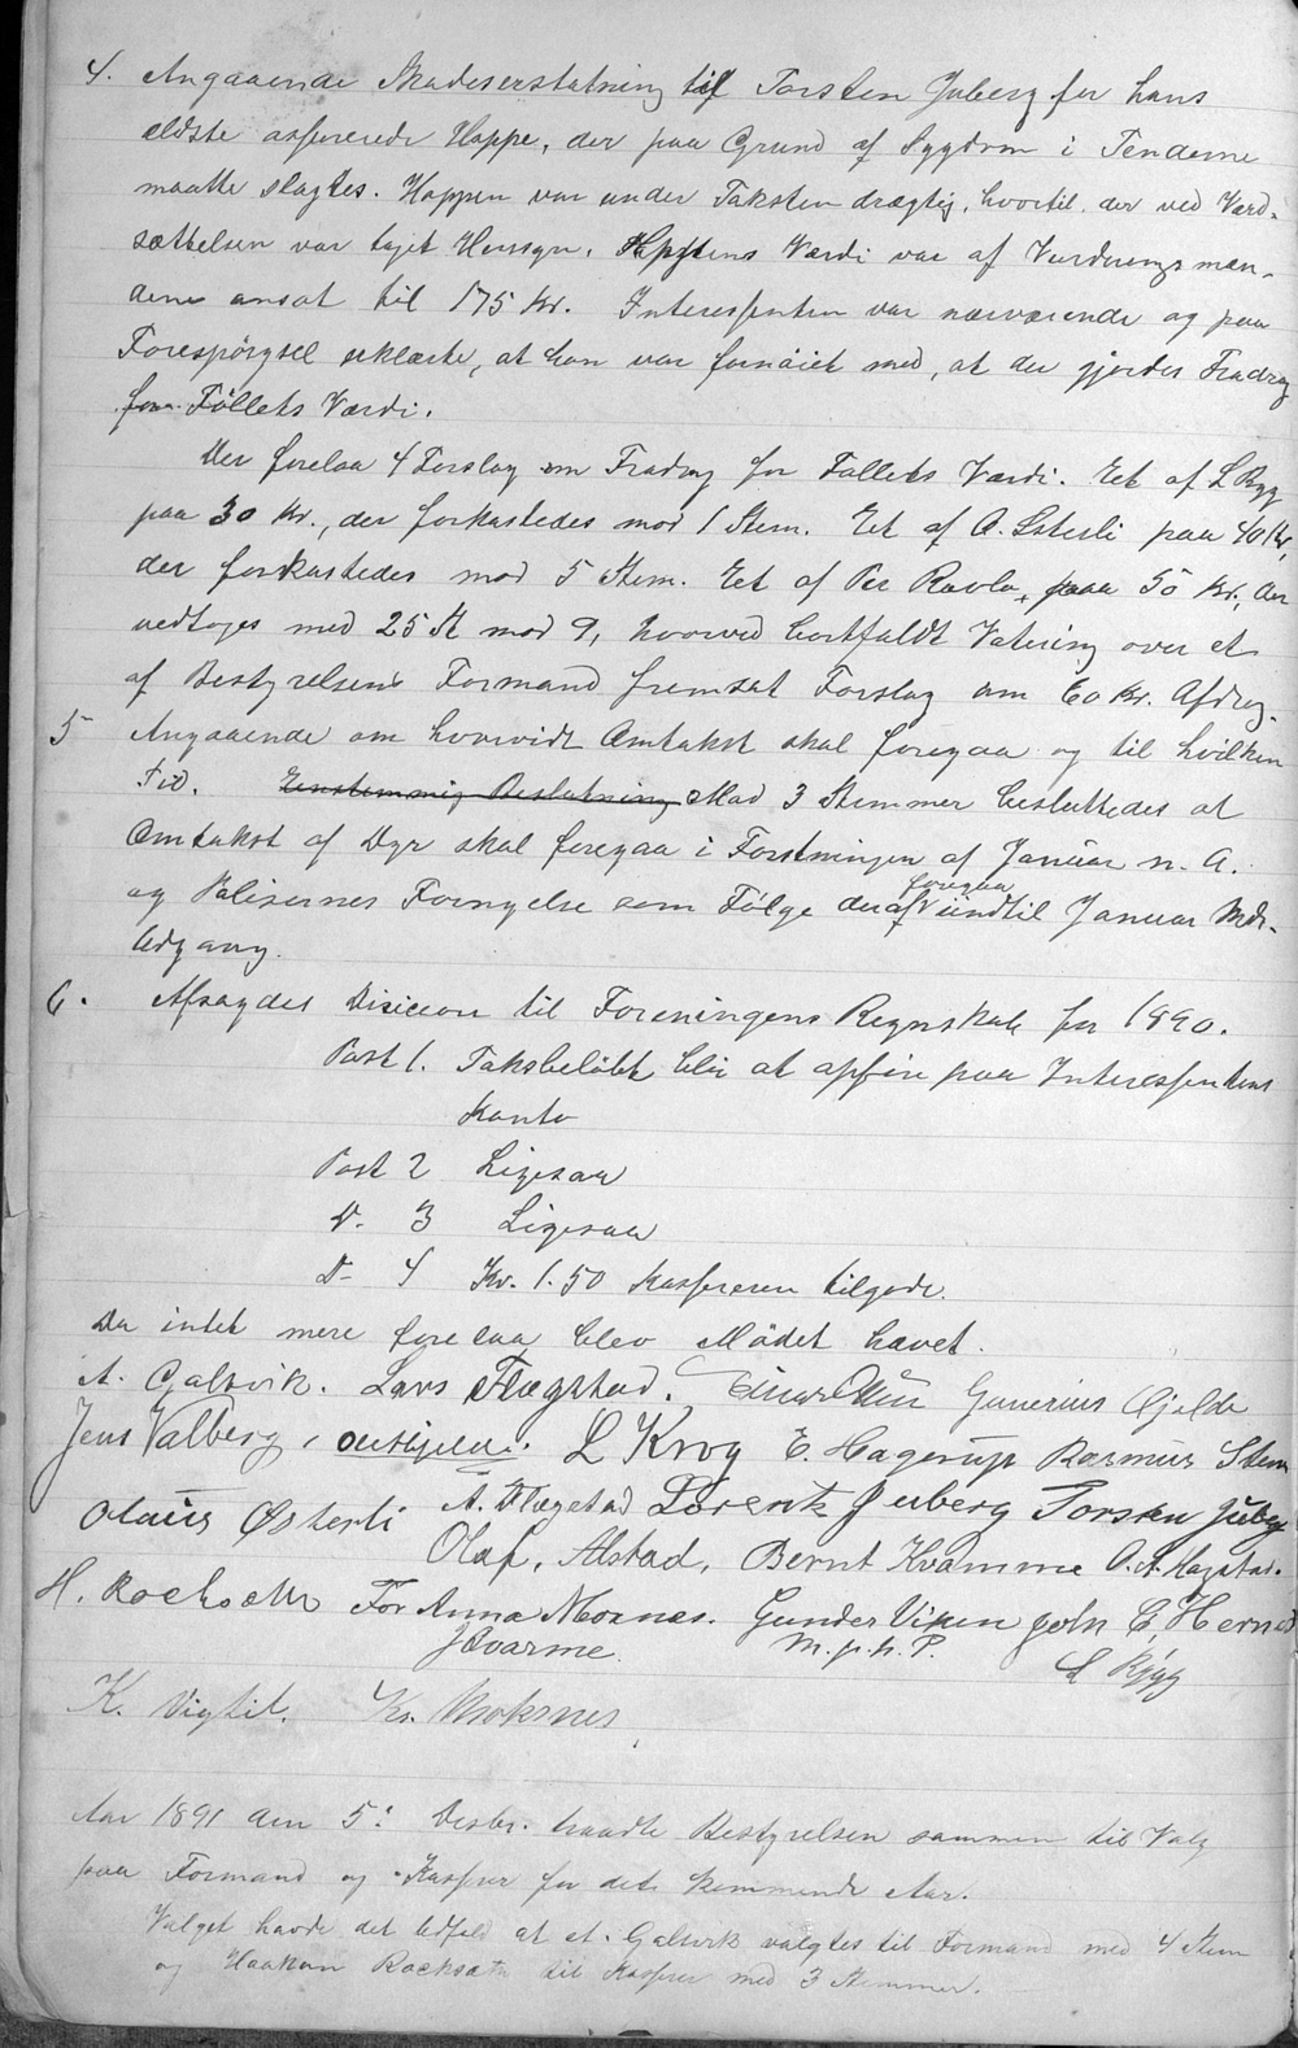 4. Angaaende Skadeserstatning til Torsten Juberg for hans
ældste assurerede Hoppe, der paa Grund af Sygdom i Tenderne
maatte slagtes. Hoppen var under Taksten drægtig, hvortil der ved Værd-
sættelsen var taget Hensyn. Hoppens Værdi var af Vurderingsmæn-
dene ansat til 175 Kr. Interessenten var nærværende og paa
Forespørgsel erklærte, at han var fornöiet med, at der gjordes Fradrag
for Föllets Værdi.
Der forelaa 4 Forslag om Fradrag for Föllets Værdi. Eet af L Rygg
paa 30 Kr., der forkastedes mod 1 Stem. Et af O. Østerli paa 40 Kr,
der forkastedes mod 5 Stem. Eet af Per Ravlo, paa 50 Kr., der
vedtoges med 25 St mod 9, hvorved bortfaldt Votering over et
af Bestyrelsens Formand fremsat Forslag om 60 Kr. Afdrag.
5 Angaaende om hvorvidt Omtakst skal foregaa og til hvilken
Tid. Eenstemmig Beslutning Mod 3 Stemmer besluttedes at
Omtakst af Dyr skal foregaa i Forstningen af Januar n. A.
og Polisernes Fornyelse som Fölge deraf foregaa indtil Januar Mds.
Udgang.
6. Afsagdes Disicion til Foreningens Regnskab for 1890.
Post 1. Taksbelöbet blir at opföre paa Interessentens
Konto
Post 2 Ligesaa
D- 3 Ligesaa
D- 4 Kr. 1.50 Kassereren tilgode.
Da intet mere forelaa blev Mödet hævet.
A. Galtvik. Lars Flægstad. Gunerius Gjelde
Jens Valberg, L Krog E. Hagerup Rasmus Stene
Olaus Østerli A. Flægstad Lorents Juberg Torsten Juberg
Olaf, Alstad, Bernt Kvamme O. A.
H. Rochseth For Anna Moxnes. Gunder Viken John E, Hernes
J Kvarme. M. p. h. P. L Rygg
K. Vigtil. Kr. Moksnes
Aar 1891 den 5: Desbr. traadte Bestyrelsen sammen til Valg
paa Formand og Kasserer for det kommende Aar.
Valget havde det Udfald at A. Galtvik valgtes til Formand med 4 Stem
og Haakon Rochseth til Kasserer med 3 Stemmer.